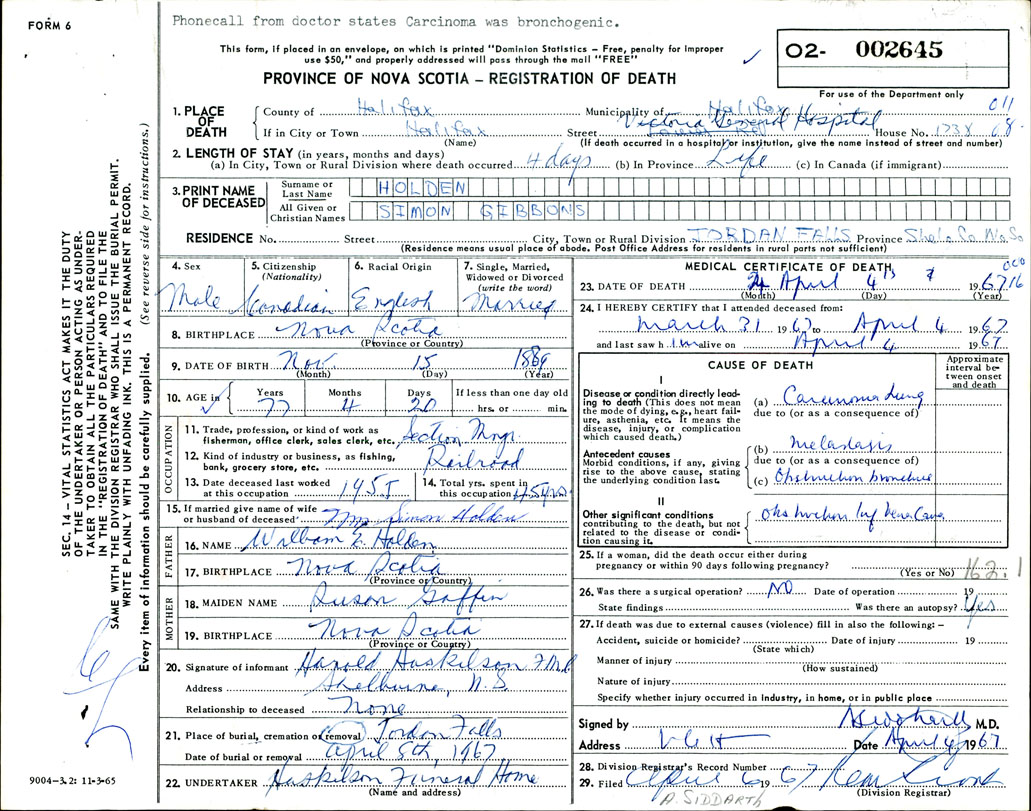 FORM 6
Phonecall from doctor states Carcinoma was bronchogenic.
This form, if placed in an envelope, on which is printed "Dominion Statistics – Free, penalty for improper
use $50," and properly addressed will pass through the mail "FREE"
PROVINCE OF NOVA SCOTIA – REGISTRATION OF DEATH
O2- 002645
For use of the Department only
SEC. 14 – VITAL STATISTICS ACT MAKES IT THE DUTY
OF THE UNDERTAKER OR PERSON ACTING AS UNDER-
TAKER TO OBTAIN ALL THE PARTICULARS REQUIRED
IN THE "REGISTRATION OF DEATH" AND TO FILE THE
SAME WITH THE DIVISION REGISTRAR WHO SHALL ISSUE THE BURIAL PERMIT.
WRITE PLAINLY WITH UNFADING INK. THIS IS A PERMANENT RECORD.
Every item of information should be carefully supplied. (See reverse side for instructions.)
1. PLACE OF DEATH
County of Halifax Municipality of Halifax 011
If in City or Town Halifax Street Victoria General Hospital House No. 1738 68
(Name) (If death occurred in a hospital or institution, give the name instead of street and number)
2. LENGTH OF STAY (in years, months and days)
(a) In City, Town or Rural Division where death occurred 4 days (b) In Province Life (c) In Canada (if immigrant)
3. PRINT NAME OF DECEASED
Surname or Last Name HOLDEN
All Given or Christian Names SIMON GIBBONS
RESIDENCE No. Street City, Town or Rural Division JORDAN FALLS Province Shel. Co. N.S.
(Residence means usual place of abode. Post Office Address for residents in rural parts not sufficient)
4. Sex Male
5. Citizenship (Nationality) Canadian
6. Racial Origin English
7. Single, Married, Widowed or Divorced (write the word) Married
8. BIRTHPLACE Nova Scotia
(Province or Country)
9. DATE OF BIRTH Nov. 15 1889
(Month) (Day) (Year)
10. AGE in Years 77 Months 4 Days 20 If less than one day old hrs. or min.
OCCUPATION
11. Trade, profession, or kind of work as fisherman, office clerk, sales clerk, etc. Section Mngr.
12. Kind of industry or business, as fishing, bank, grocery store, etc. Railroad
13. Date deceased last worked at this occupation 1955
14. Total yrs. spent in this occupation 45 yrs
15. If married give name of wife or husband of deceased Mrs Simon Holden
FATHER
16. NAME William E. Holden
17. BIRTHPLACE Nova Scotia
(Province or Country)
MOTHER
18. MAIDEN NAME Susan Goffin
19. BIRTHPLACE Nova Scotia
(Province or Country)
20. Signature of informant Harold Huskilson F.M.D
Address Shelburne, N.S.
Relationship to deceased None
21. Place of burial, cremation or removal Jordan Falls
Date of burial or removal April 8th, 1967
22. UNDERTAKER Huskilson Funeral Home
(Name and address)
9004-3.2: 11-3-65
MEDICAL CERTIFICATE OF DEATH
23. DATE OF DEATH April 4 1967
(Month) (Day) (Year)
24. I HEREBY CERTIFY that I attended deceased from:
March 31 1967 to April 4 1967
and last saw him alive on April 4 1967
CAUSE OF DEATH
Approximate interval between onset and death
I
Disease or condition directly leading to death (This does not mean the mode of dying, e.g., heart failure, asthenia, etc. It means the disease, injury, or complication which caused death.)
(a) Carcinoma lung
due to (or as a consequence of)
Antecedent causes
Morbid conditions, if any, giving rise to the above cause, stating the underlying condition last.
(b) Metastasis
due to (or as a consequence of)
(c) Obstruction bronchus
II
Other significant conditions contributing to the death, but not related to the disease or condition causing it.
Obstruction by Vena Cava
25. If a woman, did the death occur either during
pregnancy or within 90 days following pregnancy?
(Yes or No) 162.1
26. Was there a surgical operation? NO Date of operation 19
State findings Was there an autopsy? Yes
27. If death was due to external causes (violence) fill in also the following: –
Accident, suicide or homicide? Date of injury 19
(State which)
Manner of injury
(How sustained)
Nature of injury
Specify whether injury occurred in Industry, in home, or in public place
Signed by M.D.
Address V.G.H Date April 4 1967
28. Division Registrar's Record Number
29. Filed April 6 1967
(Division Registrar)
A. SIDDARTH